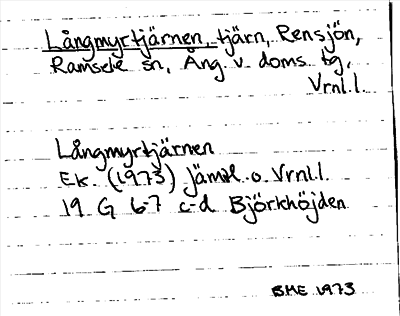 Långmyrtjärnen, tjärn, Rensjön,
Ramsele sn, Ång. v. doms. tg,
Vrnl.l.
Långmyrtjärnen
Ek. (1973) Jämtl. o. Vrnl.l.
19 G 6-7 c-d Björkhöjden
BME 1973